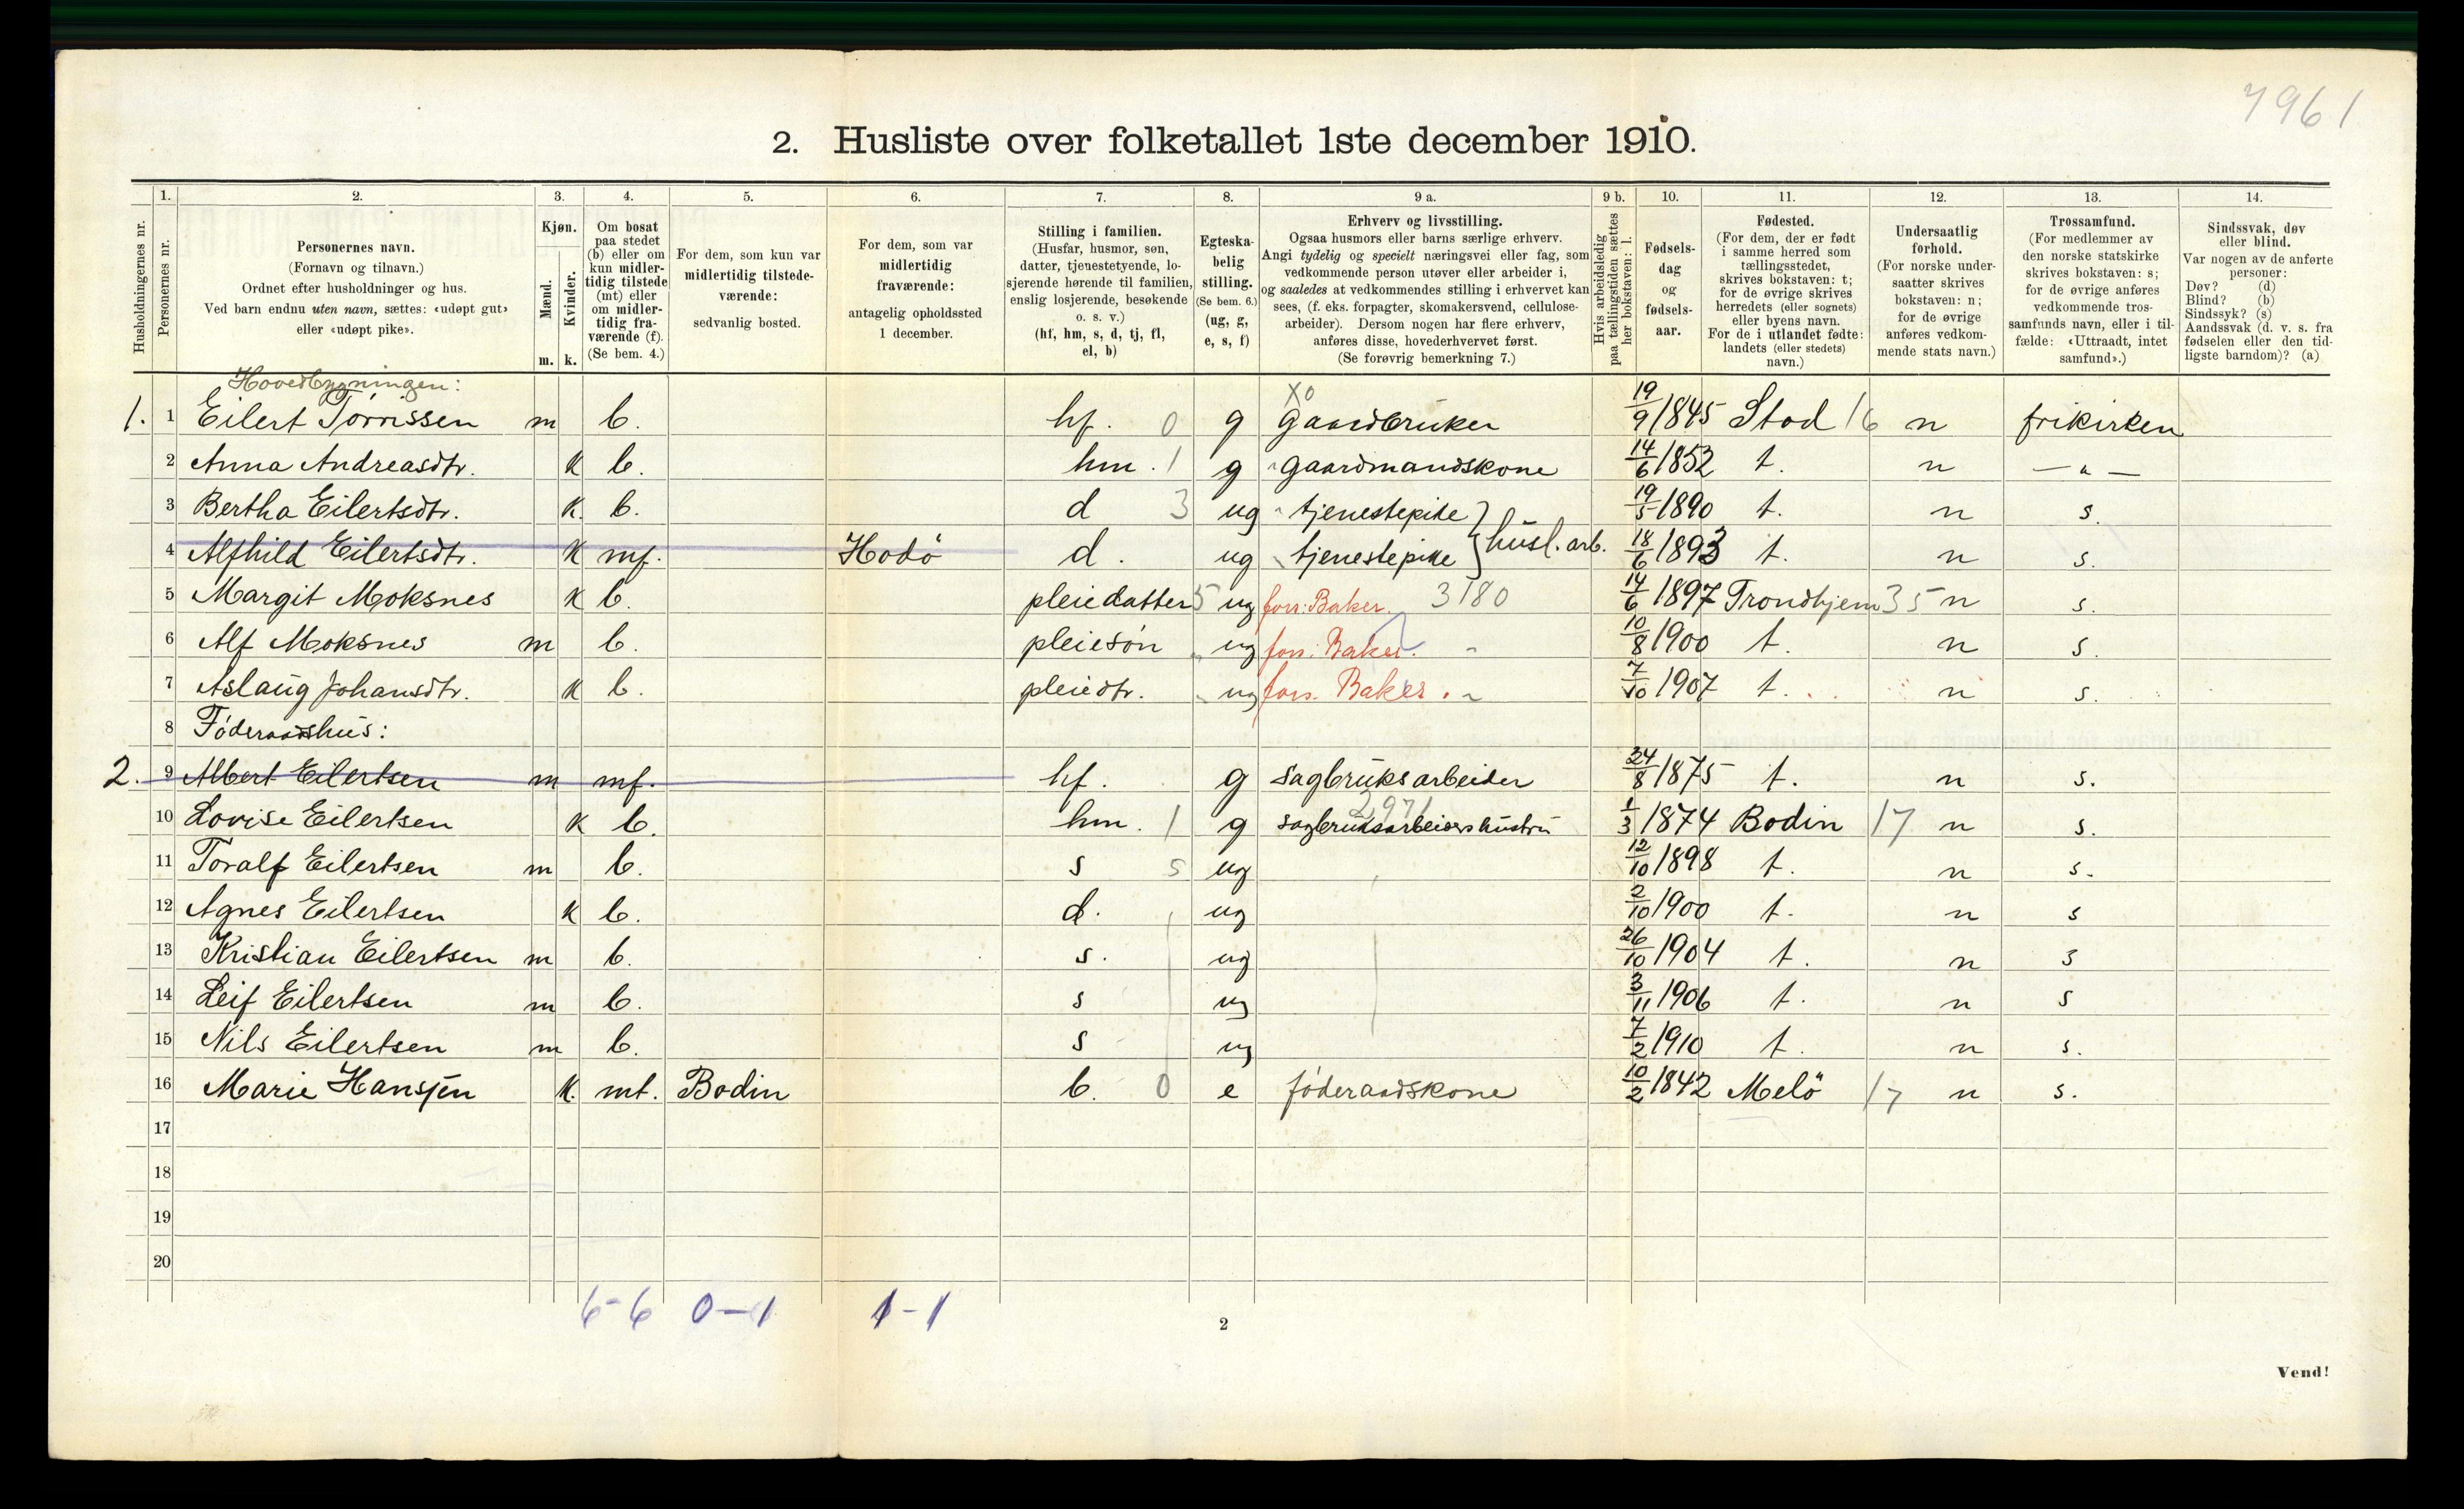 7961
2. Husliste over folketallet 1ste december 1910.
1. 2. 3. 4. 5. 6. 7. 8. 9 a. 9 b. 10. 11. 12. 13. 14.
Husholdningernes nr.
Personernes nr.
Personernes navn.
(Fornavn og tilnavn.)
Ordnet efter husholdninger og hus.
Ved barn endnu uten navn, sættes: «udøpt gut»
eller «udøpt pike».
Kjøn.
Mænd.
Kvinder.
m. k.
Om bosat
paa stedet
(b) eller om
kun midler-
tidig tilstede
(mt) eller
om midler-
tidig fra-
værende (f).
(Se bem. 4.)
For dem, som kun var
midlertidig tilstede-
værende:
sedvanlig bosted.
For dem, som var
midlertidig
fraværende:
antagelig opholdssted
1 december.
Stilling i familien.
(Husfar, husmor, søn,
datter, tjenestetyende, lo-
sjerende hørende til familien,
enslig losjerende, besøkende
o. s. v.)
(hf, hm, s, d, tj, fl,
el, b)
Egteska-
belig
stilling.
(Se bem. 6.)
(ug, g,
e, s, f)
Erhverv og livsstilling.
Ogsaa husmors eller barns særlige erhverv.
Angi tydelig og specielt næringsvei eller fag, som
vedkommende person utøver eller arbeider i,
og saaledes at vedkommendes stilling i erhvervet kan
sees, (f. eks. forpagter, skomakersvend, cellulose-
arbeider). Dersom nogen har flere erhverv,
anføres disse, hovederhvervet først.
(Se forøvrig bemerkning 7.)
Hvis arbeidsledig
paa tællingstiden sættes
her bokstaven: l.
Fødsels-
dag
og
fødsels-
aar.
Fødested.
(For dem, der er født
i samme herred som
tællingsstedet,
skrives bokstaven: t;
for de øvrige skrives
herredets (eller sognets)
eller byens navn.
For de i utlandet fødte:
landets (eller stedets)
navn.)
Undersaatlig
forhold.
(For norske under-
saatter skrives
bokstaven: n;
for de øvrige
anføres vedkom-
mende stats navn.)
Trossamfund.
(For medlemmer av
den norske statskirke
skrives bokstaven: s;
for de øvrige anføres
vedkommende tros-
samfunds navn, eller i til-
fælde: «Uttraadt, intet
samfund».)
Sindssvak, døv
eller blind.
Var nogen av de anførte
personer:
Døv? (d)
Blind? (b)
Sindssyk? (s)
Aandssvak (d. v. s. fra
fødselen eller den tid-
ligste barndom)? (a)
Hovedbygningen:
1. 1 Eilert Tørrissen m b. hf. 0 g X0 gaardbruker 19/9 1845 Stod 16 n frikirken
2 Anna Andreasdtr. k b. hm. 1 g gaardmandskone 14/6 1852 t. n — " —
3 Bertha Eilertsdtr. k. b. d 3 ug tjenestepike } 19/5 1890 t. n s.
4 Alfhild Eilertsdtr. k mf. Hodö d. ug tjenestepike } husl. arb. 18/6 1893 t. n s.
5 Margit Moksnes k b. pleiedatter 5 ug fors: Baker. 3180 14/6 1897 Trondhjem 35 n s.
6 Alf Moksnes m b. pleiesön " ug fors: Baker. " 10/8 1900 t. n s.
7 Aslaug Johansdtr. k b. pleiedtr. " ug fors. Baker. " 7/10 1907 t. n s.
8 Föderaadshus:
2. 9 Albert Eilertsen m mf. hf. g sagbruksarbeider 24/8 1875 t. n s.
10 Lovise Eilertsen k b. hm. 1 g 2971 sagbruksarbeidershustru 1/3 1874 Bodin 17 n s.
11 Toralf Eilertsen m b. s 5 ug 12/10 1898 t. n s.
12 Agnes Eilertsen k b. d. ug 2/10 1900 t. n s
13 Kristian Eilertsen m b. s. ug 26/10 1904 t. n s
14 Leif Eilertsen m b. s ug 3/11 1906 t. n s
15 Nils Eilertsen m b. s ug 7/2 1910 t. n s.
16 Marie Hansen k. mt. Bodin b. 0 e föderaadskone 10/2 1842 Melö 17 n s.
17
18
19
20
6-6 0-1 1-1
2
Vend!